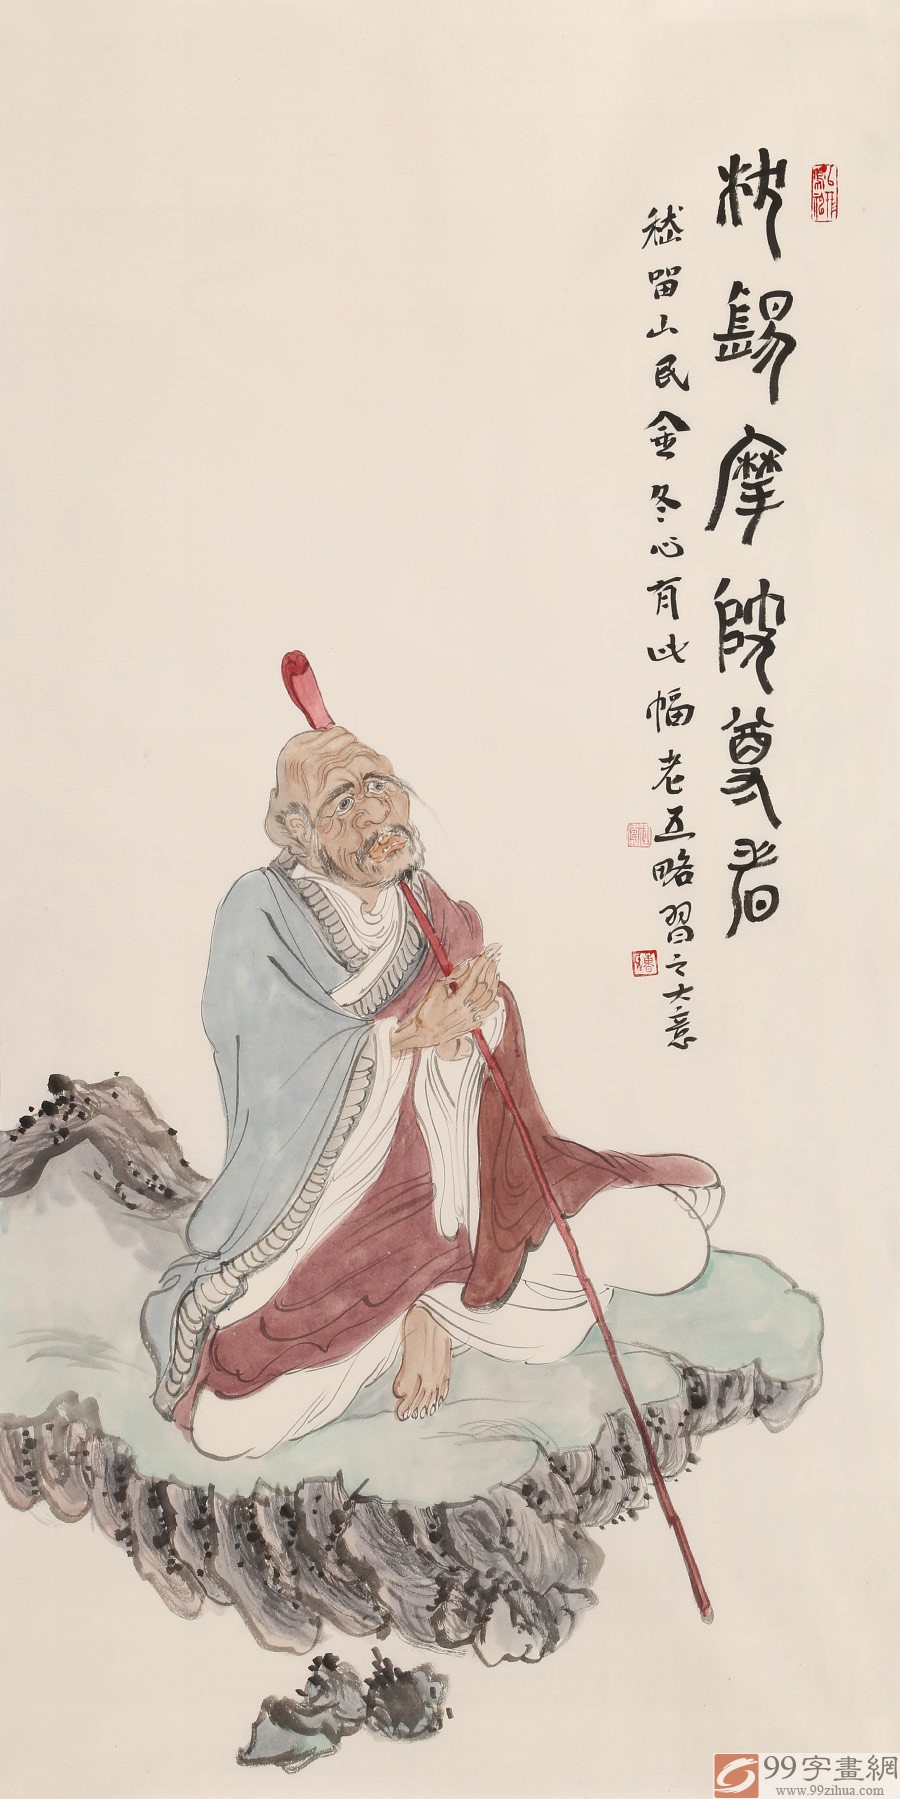 錫摩陀尊者
嵇留山民金冬心有此幅老五略習之大意
99字畫網
www.99zihua.com